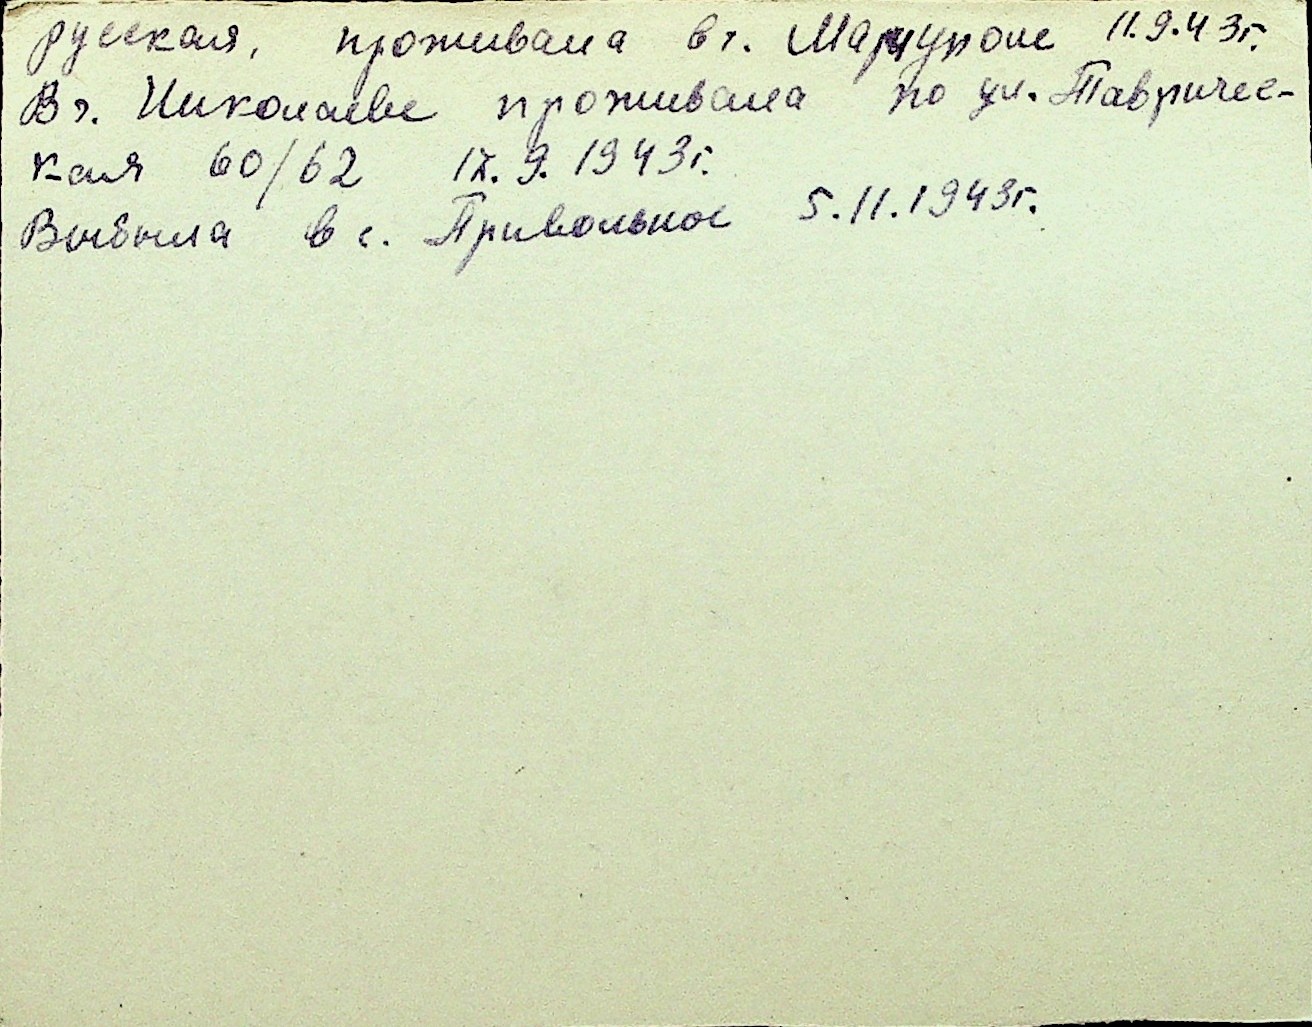 русская, проживала в г. Мариуполе 11.9.43г.
В г. Николаеве проживала по ул. Тавричес-
кая 60/62 17.9.1943г.
Выбыла в с. Привольное 5.11.1943г.